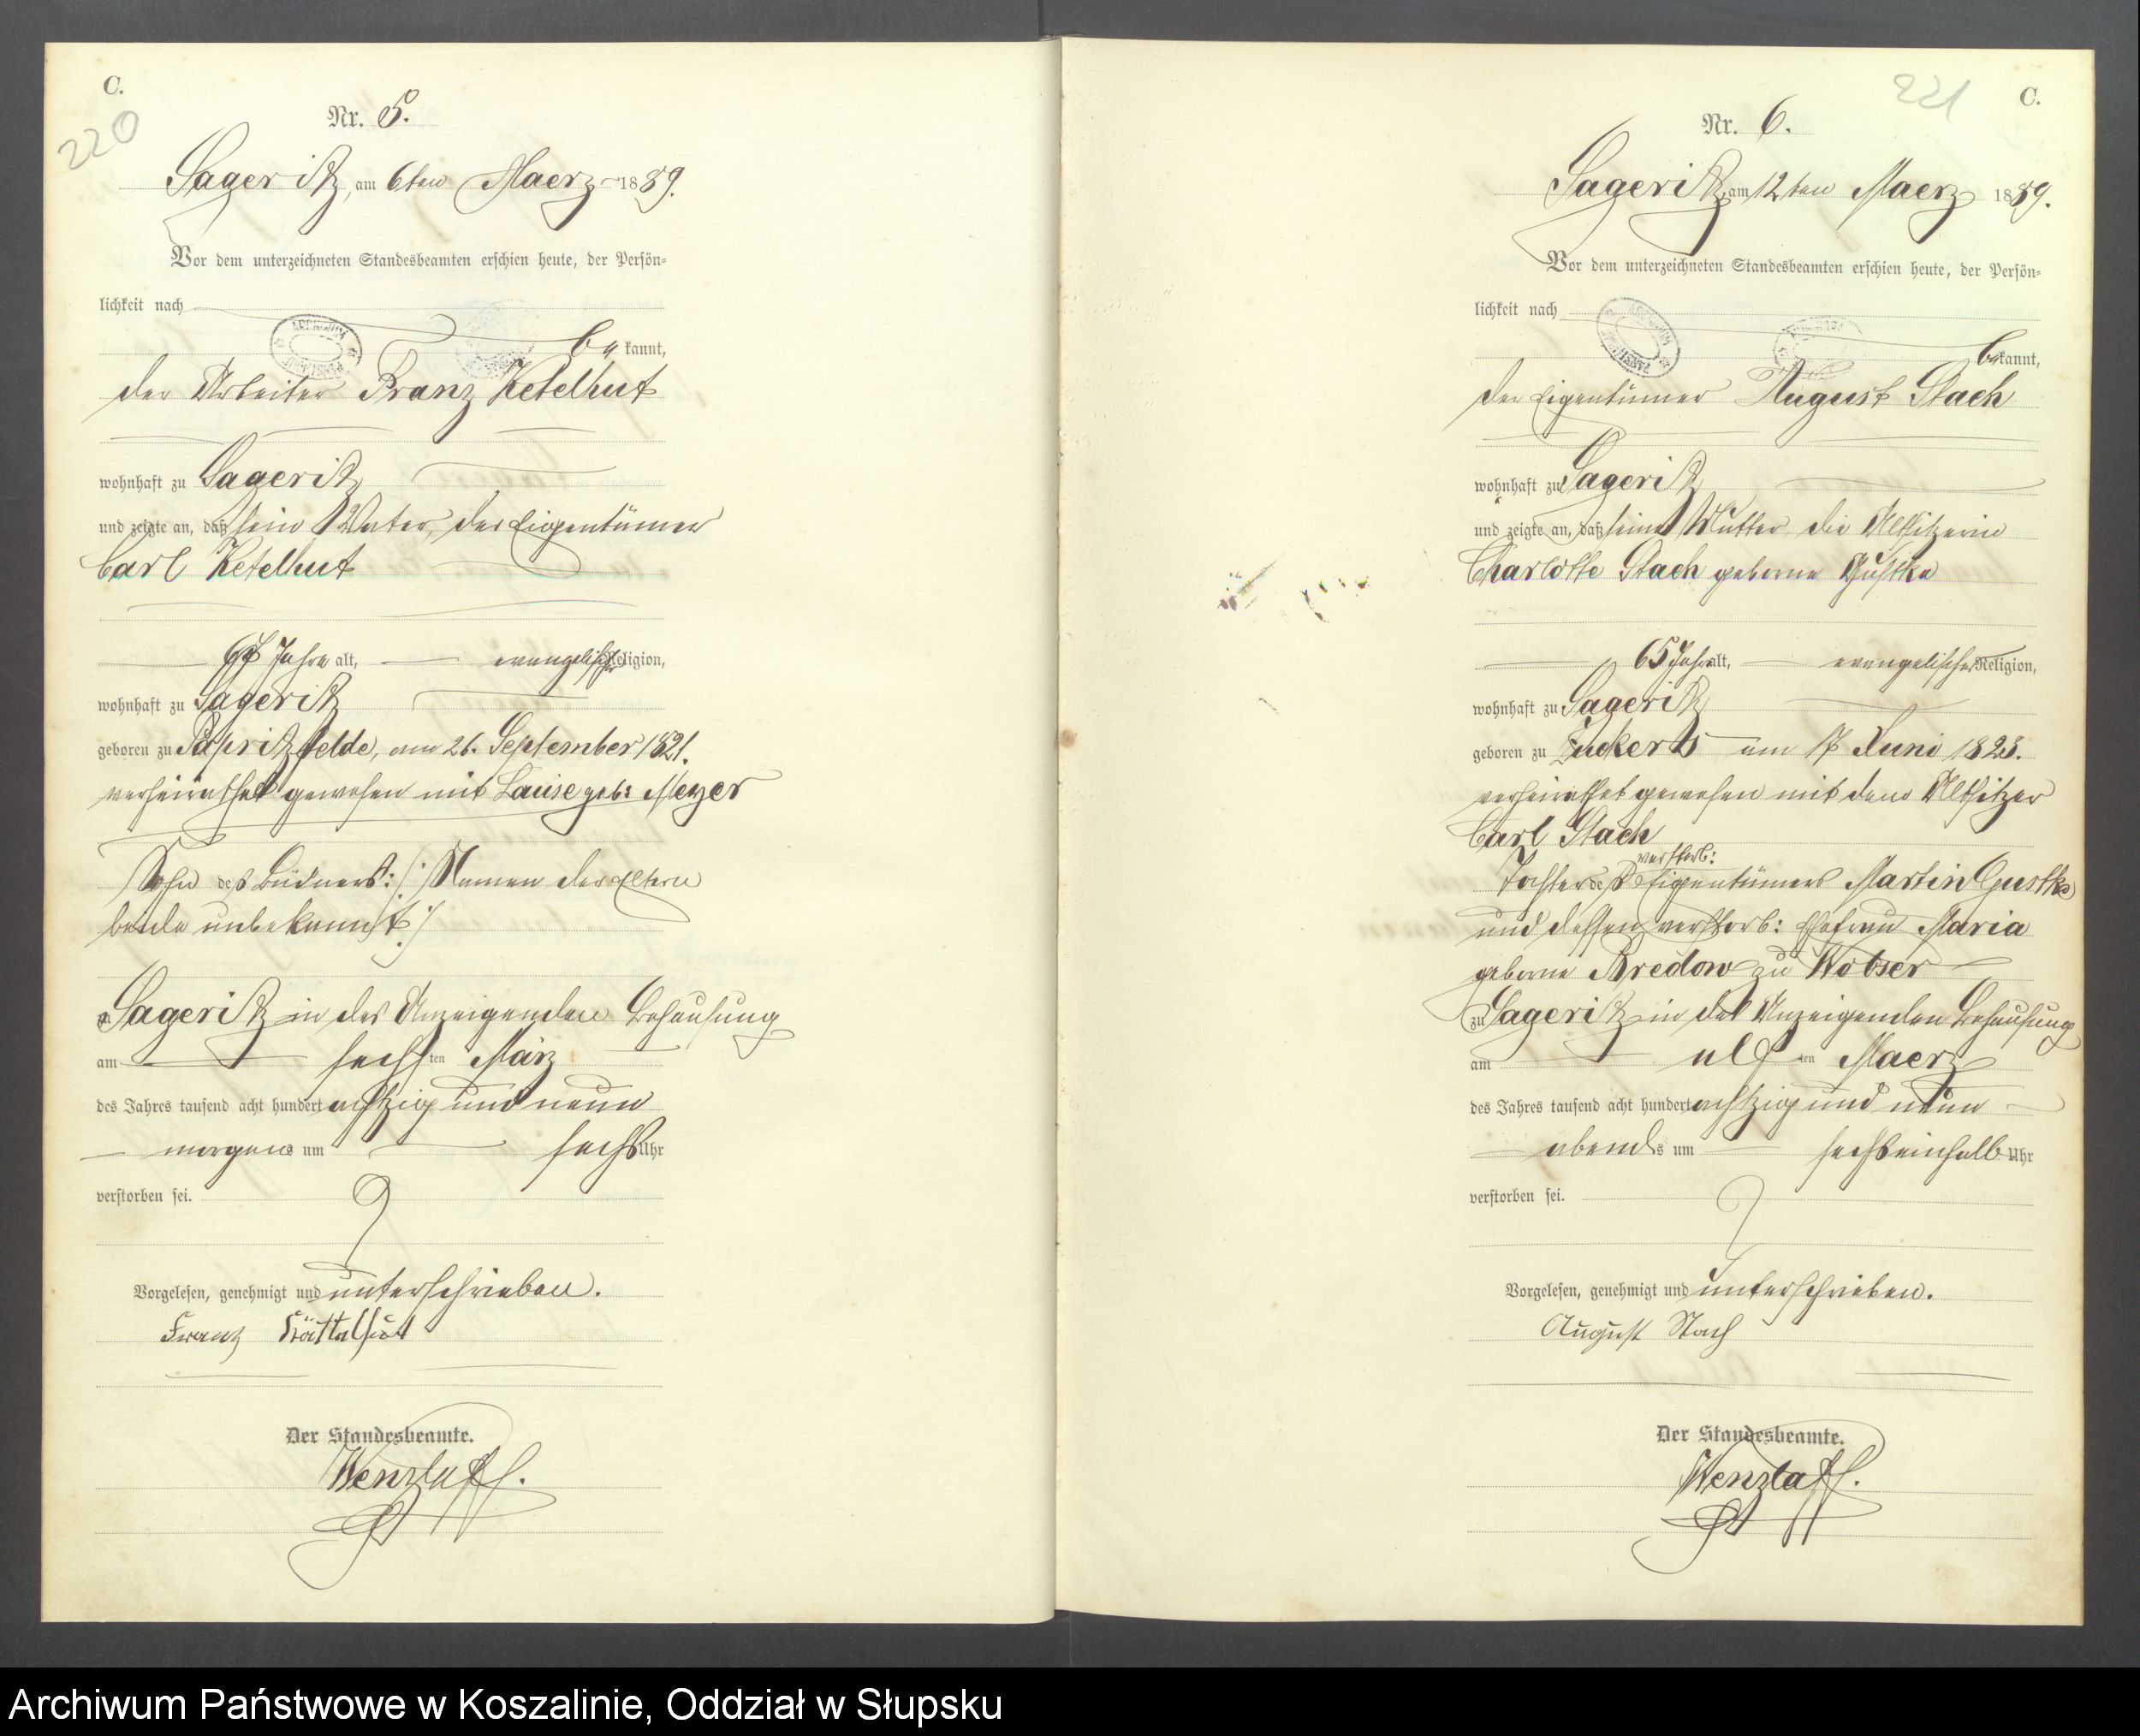 C.
220
Nr. 5.
Sageritz, am 6ten Maerz 1889.
Vor dem unterzeichneten Standesbeamten erschien heute, der Persön-
lichkeit nach
bekannt,
der Arbeiter Franz Ketelhut
wohnhaft zu Sageritz
und zeigte an, daß sein Vater, der Eigentümer
Carl Ketelhut
67 Jahre alt, evangelischer Religion,
wohnhaft zu Sageritz
geboren zu Papritzfelde, am 21. September 1821.
verheirathet gewesen mit Louise geb: Meyer
Sohn des Büdners: (: Namen der Eltern
beide unbekannt :)
zu Sageritz in des Anzeigenden Behausung
am sechsten März
des Jahres tausend acht hundert achtzig und neun
morgens um sechs Uhr
verstorben sei.
Vorgelesen, genehmigt und unterschrieben.
Franz Kättelhut
Der Standesbeamte.
Wenzlaff.
221
C.
Nr. 6.
Sageritz am 12ten Maerz 1889.
Vor dem unterzeichneten Standesbeamten erschien heute, der Persön-
lichkeit nach
bekannt,
der Eigentümer August Stach
wohnhaft zu Sageritz
und zeigte an, daß seine Mutter, die Altsitzerin
Charlotte Stach geborne Gustke
65 Jahre alt, evangelischer Religion,
wohnhaft zu Sageritz
geboren zu Zuckers am 17 Juni 1823.
verheirathet gewesen mit dem Altsitzer
Carl Stach
verstorb:
Tochter des Eigentümers Martin Gustke
und dessen verstorb: Ehefrau Maria
geborne Bredow zu Wobser
zu Sageritz in des Anzeigenden Behausung
am elften Maerz
des Jahres tausend acht hundert achtzig und neun
abends um sechseinhalb Uhr
verstorben sei.
Vorgelesen, genehmigt und unterschrieben.
August Stach
Der Standesbeamte.
Wenzlaff.
Archiwum Państwowe w Koszalinie, Oddział w Słupsku